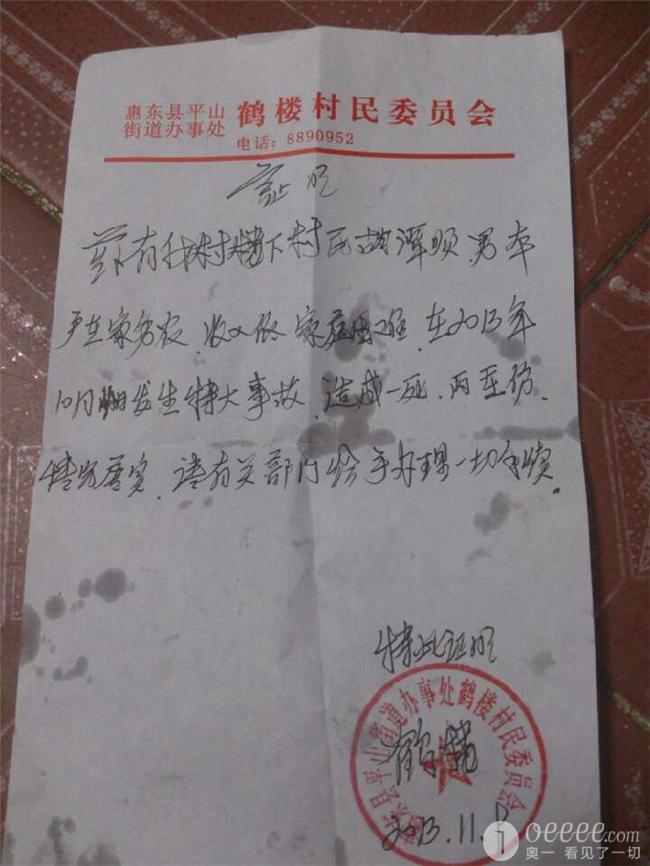 惠东县平山
街道办事处 鹤楼村民委员会
电话:8890952
证明
兹有我村楼下村民胡潭顺男本
户在家务农.收入低家庭困难.在2013年
10月 发生特大事故.造成一死.两重伤.
情况属实.请有关部门给予办理一切手续.
特此证明
惠东县平山街道办事处鹤楼村民委员会
鹤楼
2013.11.
oeeee.com
奥一 看见了一切